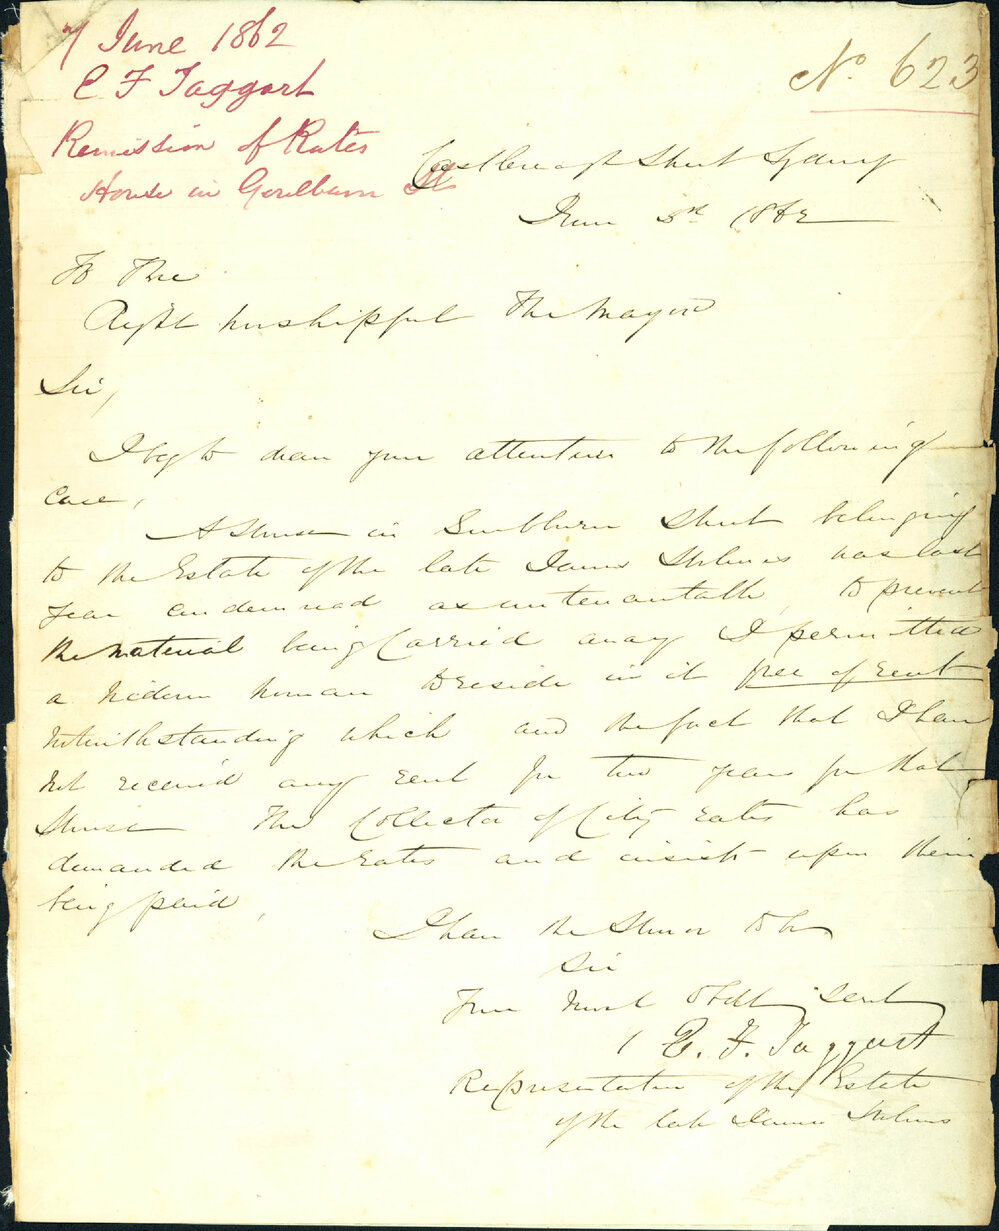 7 June 1862
C F Taggart
Remission of Rates
House in Goulburn St
No. 623
Castlereagh Street Sydney
June 5th 1862
To The
Right Worshipful The Mayor
Sir,
I beg to draw your attention to the following
case,
A House in Goulburn Street belonging
to the Estate of the late James Holmes was last
year condemned as untenantable, to prevent
the material being Carried away I permitted
a widow woman to reside in it free of rent
Notwithstanding which and the fact that I have
not received any rent for two years for that
House The Collector of City rates has
demanded the rates and insists upon their
being paid,
I have the Honor to be
Sir
Your most Obdt Servt
C. F. Taggart
Representative of the Estate
of the late James Holmes